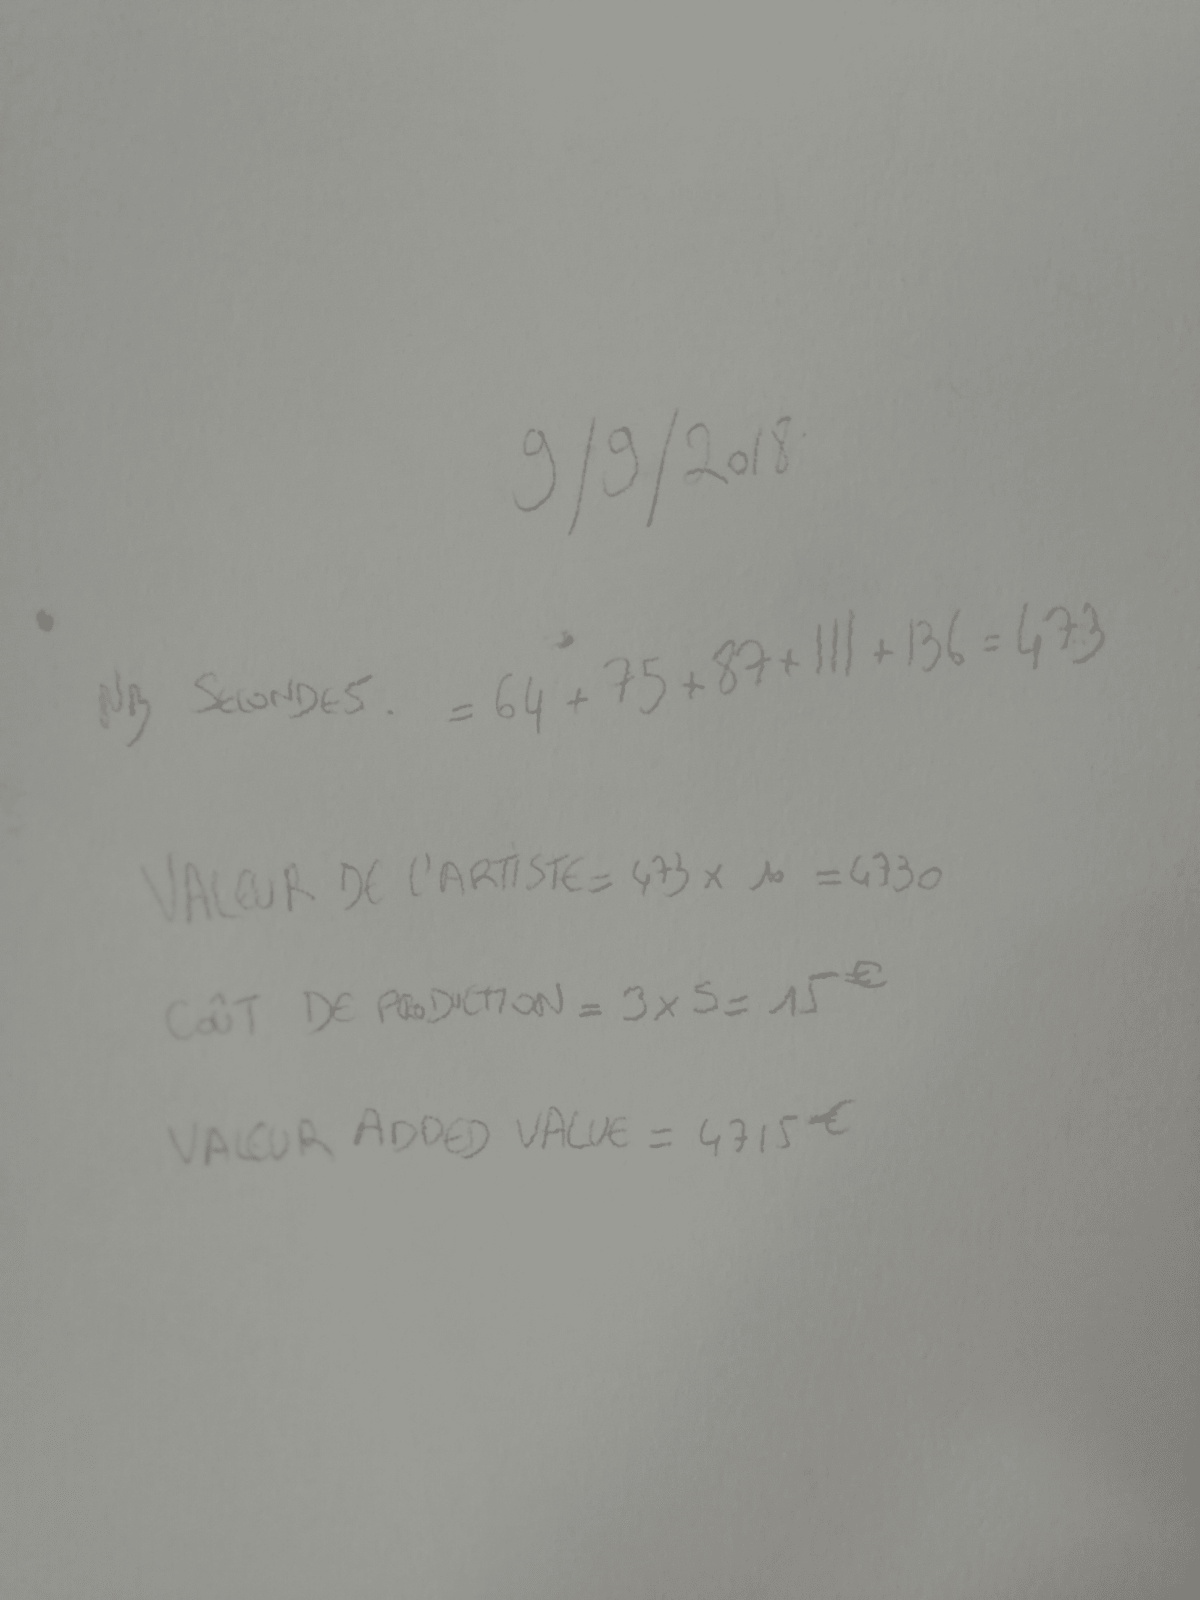 9/9/2018
NB SECONDES. = 64 + 75 + 87 + 111 + 136 = 473
VALEUR DE L'ARTISTE = 473 x 10 = 4730
COÛT DE PRODUCTION = 3 x 5 = 15 €
VALEUR ADDED VALUE = 4715 €